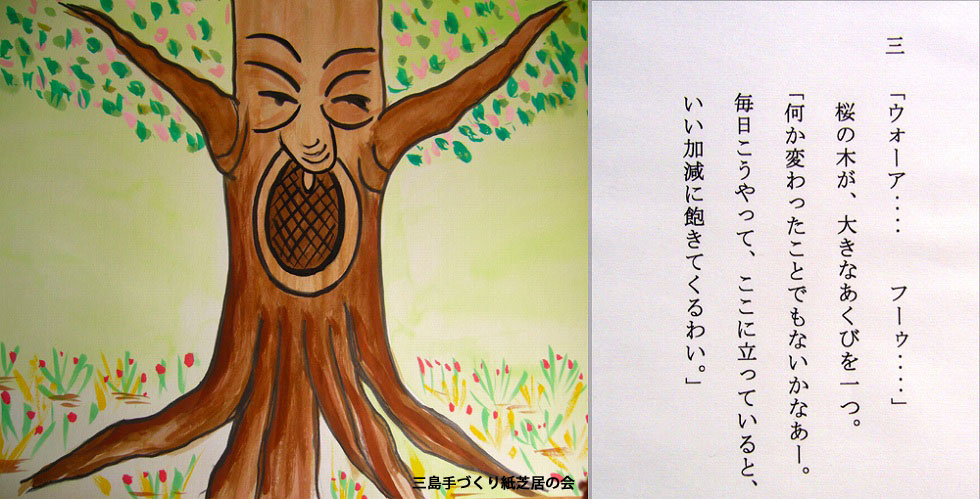 三
「ウォーア‥‥　フーゥ‥‥」
桜の木が、大きなあくびを一つ。
「何か変わったことでもないかなあー。
毎日こうやって、ここに立っていると、
いい加減に飽きてくるわい。」
三島手づくり紙芝居の会